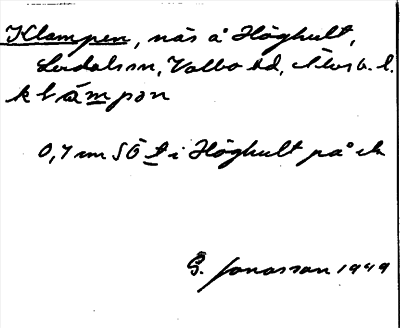 Klampen, näs å Höghult,
Lerdalssn, Valbo hd, Älvsb. l.
klámpən
0,7 mm SÖ t i Höghult på ek
G. Jonasson 1949